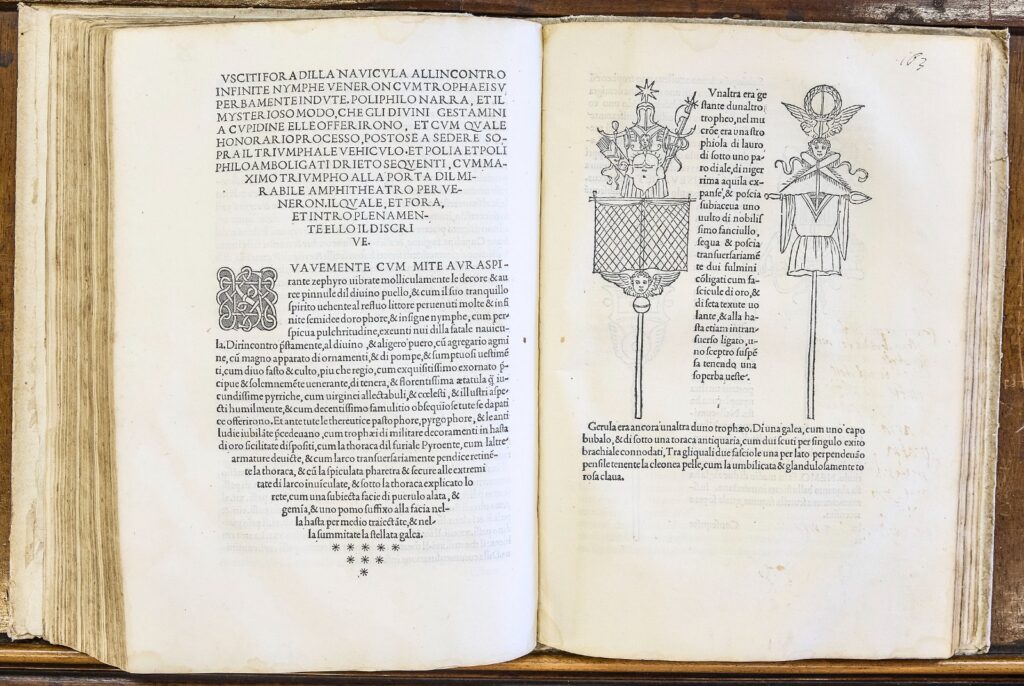 VSCITI FORA DILLA NAVICVLA ALLINCONTRO
INFINITE NYMPHE VENERON CVM TROPHAEI SV
PERBAMENTE INDVTE. POLIPHILO NARRA, ET IL
MYSTERIOSO MODO, CHE GLI DIVINI GESTAMINI
A CVPIDINE ELLE OFFERIRONO, ET CVM QVALE
HONORARIO PROCESSO, POSTOSE A SEDERE SO-
PRA IL TRIVMPHALE VEHICVLO. ET POLIA ET POLI
PHILO AMBO LIGATI DRIETO SEQVENTI, CVM MA-
XIMO TRIVMPHO ALLA PORTA DIL MI-
RABILE AMPHITHEATRO PERVE
NERON. IL QVALE, ET FORA,
ET INTRO PLENAMEN-
TE ELLO IL DISCRI
VE.
VAVEMENTE CVM MITE AVRA SPI-
rante zephyro uibrate molliculamente le decore & au
ree pinnule dil diuino puello, & cum il suo tranquillo
spirito uehente al refluo littore peruenuti molte & infi
nite semidee dorophore, & insigne nymphe, cum per-
spicua pulchritudine, exeunti nui dilla fatale nauicu-
la. Dirincontro p̃stamente, al diuino, & aligero puero, cũ agregario agmi
ne, cũ magno apparato di ornamenti, & di pompe, & sumptuosi uestimẽ
ti, cum diuo fasto & culto, piu che regio, cum exquisitissimo exornato p̃-
cipue & solemnemẽte uenerante, di tenera, & florentissima ætatula q̃ iu-
cundissime pyrriche, cum uirginei allectabuli, & cœlesti, & illustri aspe-
cti humilmente, & cum decentissimo famulitio obsequio se tute se da pati
ce offerirono. Et ante tute le thereutice pastophore, pyrgophore, & le anti
ludie iubilãte p̃cedeuano, cum trophæi di militare decoramenti in hasta
di oro sicilitate dispositi, cum la thoraca dil furiale Pyroente, cum laltre
armature deuicte, & cum larco transuersariamente pendice retinẽ-
te la thoraca, & cũ la spiculata pharetra & secure alle extremi
tate di larco inuiculate, & sotto la thoraca explicato lo
rete, cum una subiecta facie di puerulo alata, &
gemia, & uno pomo suffixo alla facia nel-
la hasta per medio traiectãte, & nel-
la summitate la stellata galea.
163
Vnaltra era ge
stante dunaltro
tropheo, nel mu
crõe era una stro
phiola di lauro,
di sotto uno pa
ro di ale, di niger
rima aquila ex-
panse, & poscia
subiaceua uno
uulto di nobilis
simo fanciullo,
sequa & poscia
transuersariamẽ
te dui fulmini
cõligati cum fa-
scicule di oro, &
di seta texute uo
lante, & alla ha-
sta etiam intran
suerso ligato, u-
no sceptro suspẽ
sa tenendo una
soperba ueste.
Gerula era ancora unaltra duno trophæo. Di una galea, cum uno capo
bubalo, & di sotto una toraca antiquaria, cum dui scuti per singulo exito
brachiale connodati, Tra gli quali due fasciole una per lato perpendeuão
pensile tenente la cleonea pelle, cum la umbilicata & glandulosamente to
rosa claua.